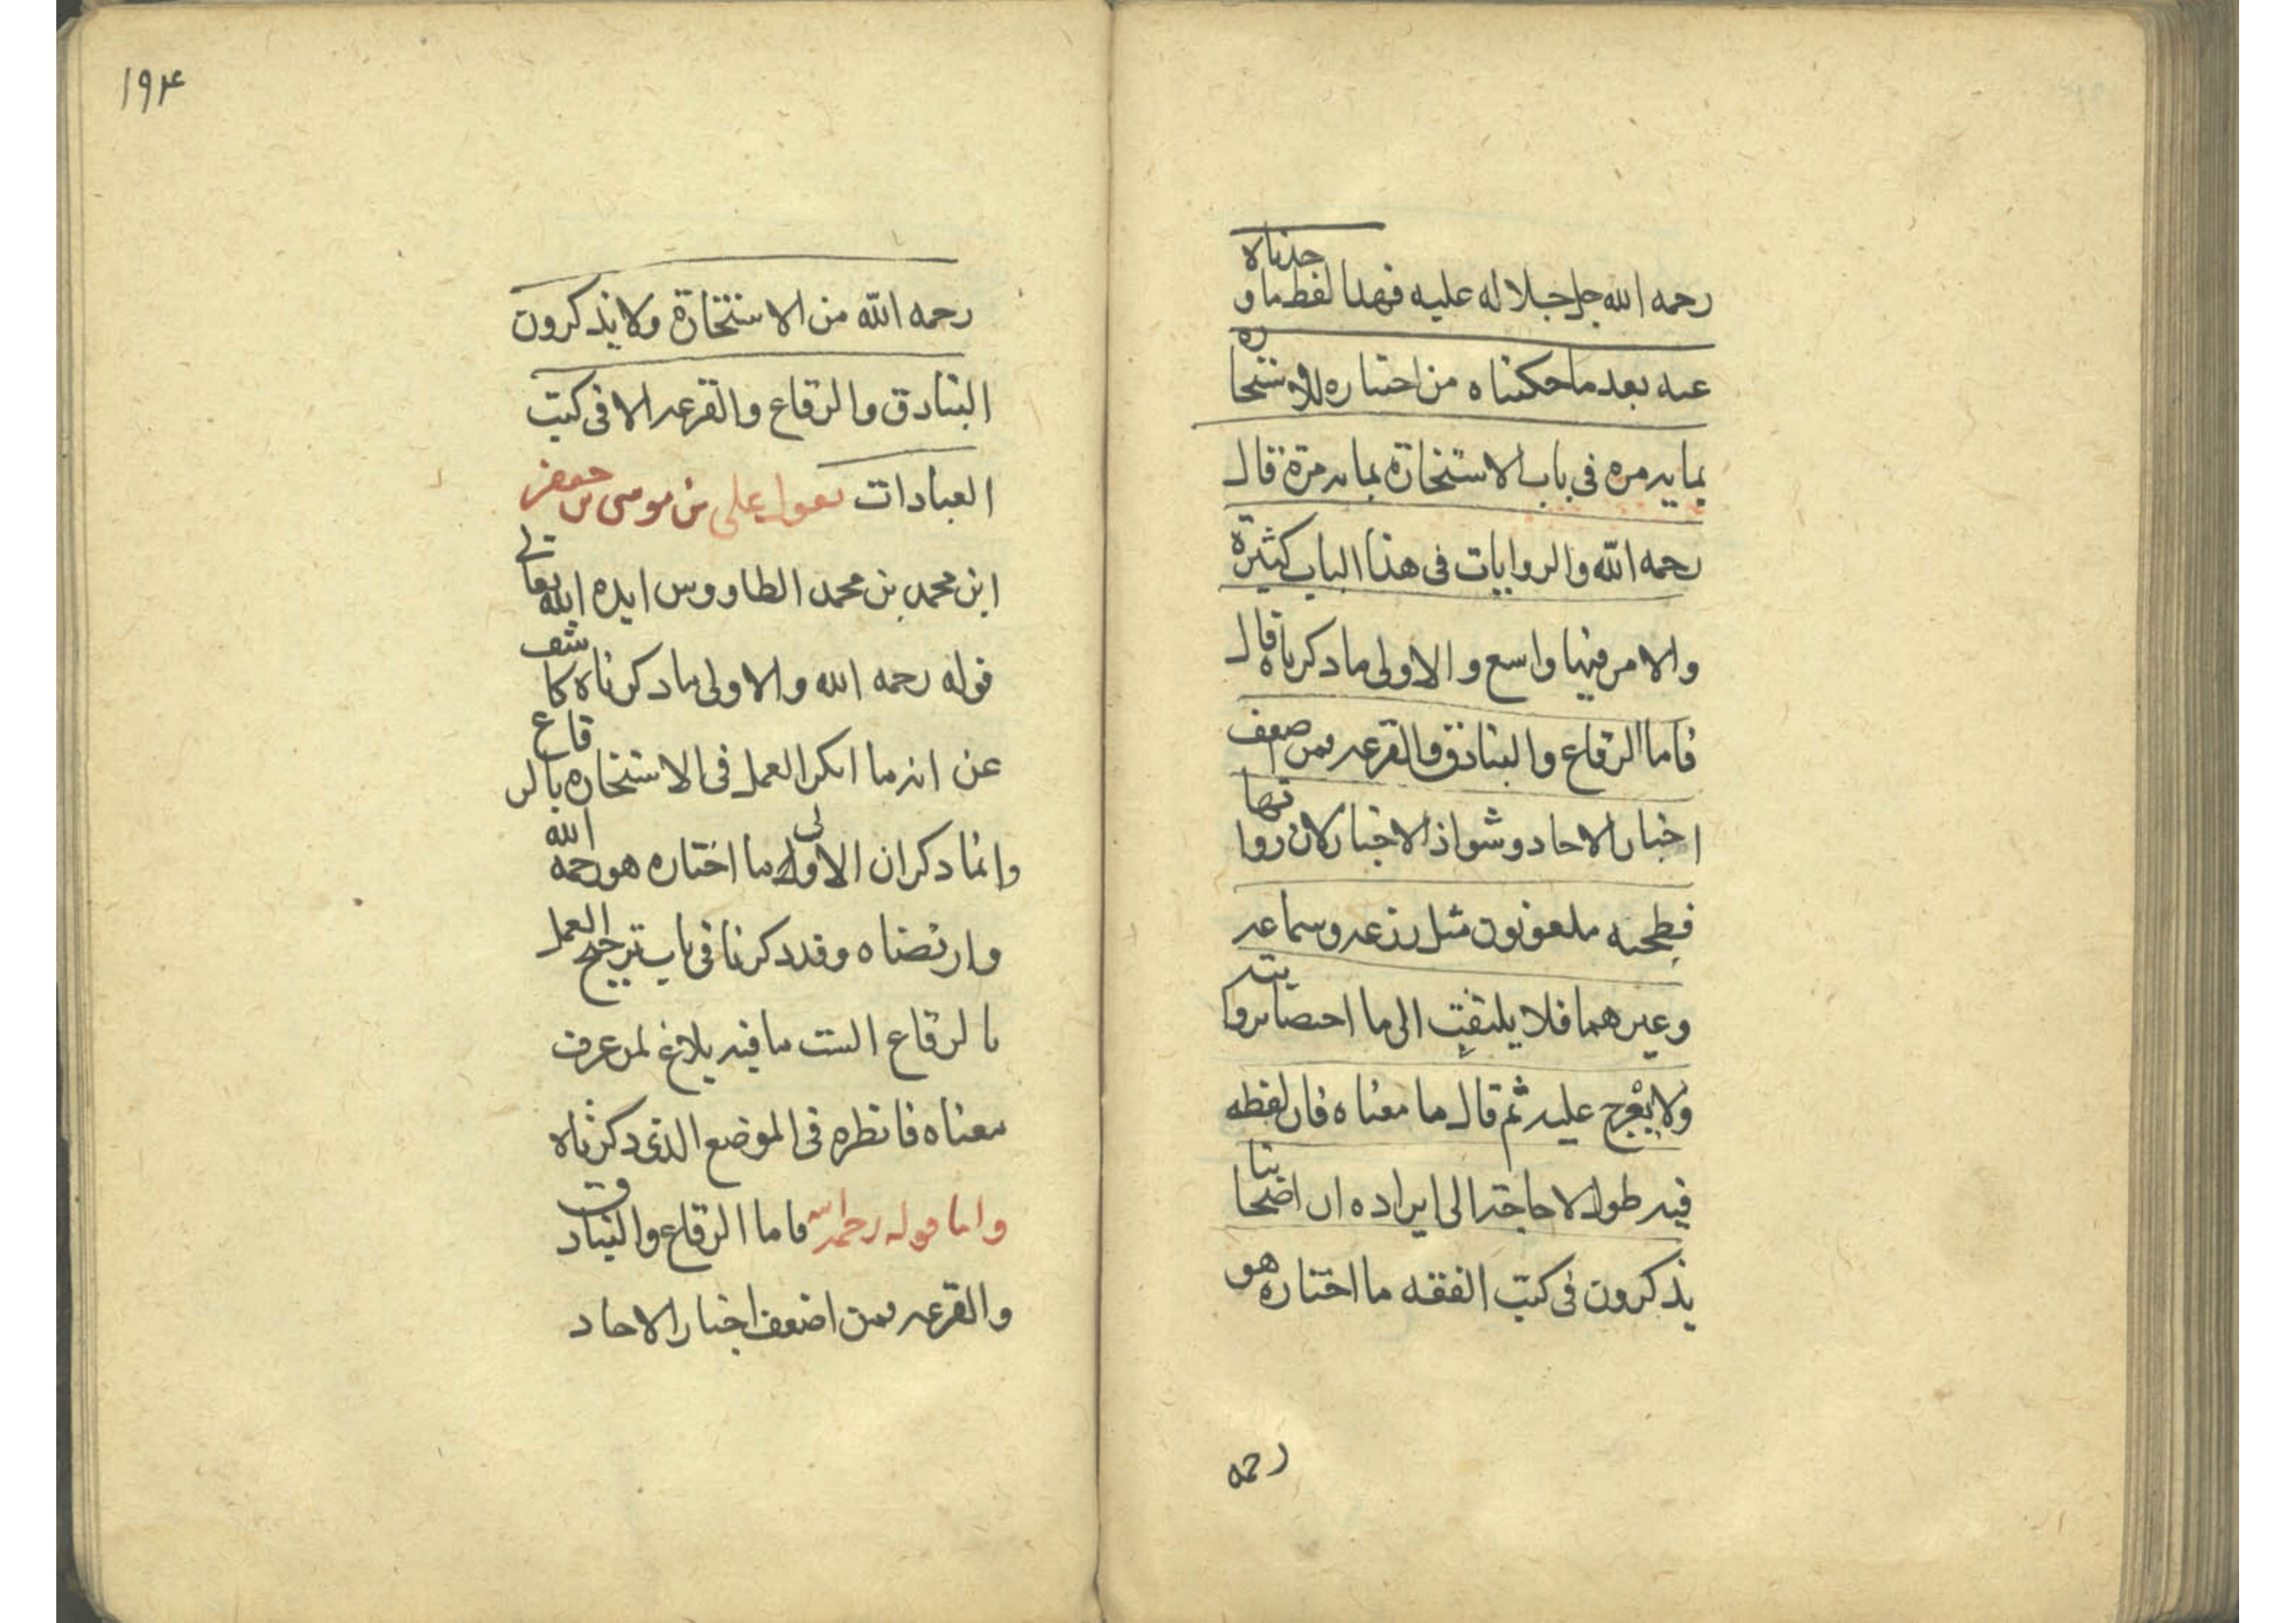 رحمه الله جل جلاله عليه فهذا لفظ ما وجدناه
عنه بعد ما حكيناه من اختياره للاستخاره
بما يدمره في باب الاستخارة بما يدمرة قال
رحمه الله والروايات في هذا الباب كثيرة
والامر فيها واسع والاولى ما ذكرناه قال
فاما الرقاع والبنادق والقرعه فمن اضعف
اخبار الاحاد وشواذ الاخبار لان رواتها
فطحيه ملعونون مثل زرعه وسماعه
وغيرهما فلا يلتفت الى ما اختصا بروايته
ولا يعرج عليه ثم قال ما معناه فان لفظه
فيه طول لا حاجة الى ايراده ان اصحابنا
يذكرون في كتب الفقه ما اختاره هو
رحمه
١٩٤
رحمه الله من الاستخارة ولا يذكرون
البنادق والرقاع والقرعه الا في كتب
العبادات يقول علي بن موسى بن جعفر
ابن محمد بن محمد الطاووس ايده الله تعالى
قوله رحمه الله والاولى ما ذكرناه كاشف
عن انه ما انكر العمل في الاستخاره بالرقاع
وانما ذكر ان الاولى ما اختاره هو رحمه الله
وارتضاه وقد ذكرنا في باب ترجيح العمل
بالرقاع الست ما فيه بلاغ لمن عرف
معناه فانظره في الموضع الذي ذكرناه
واما قوله رحمه الله فاما الرقاع والبنادق
والقرعه فمن اضعف اخبار الاحاد